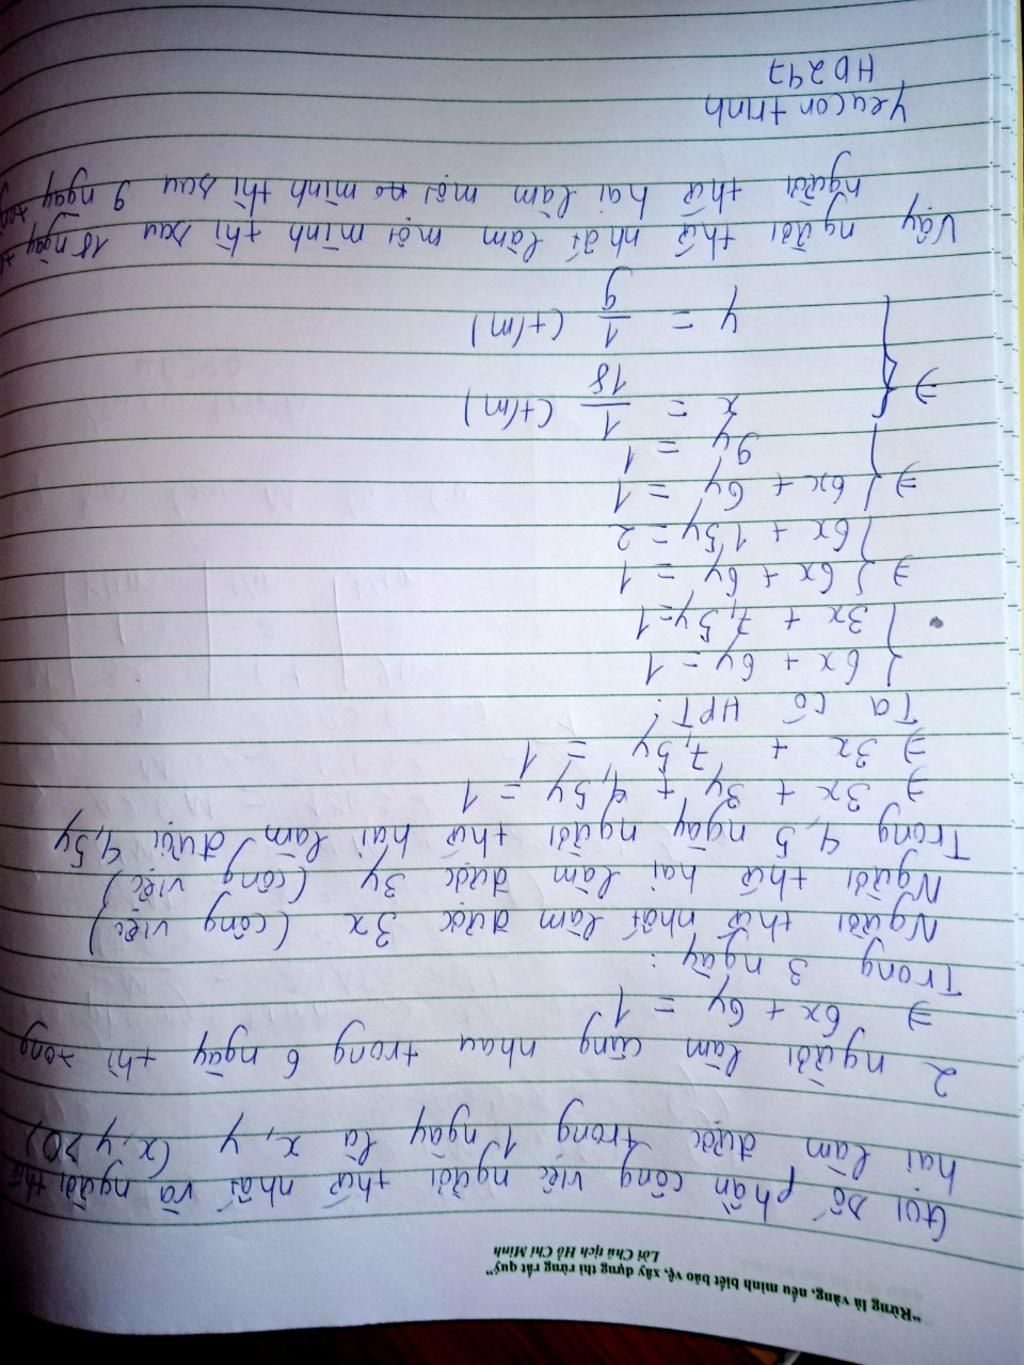 "Rừng là vàng, nếu mình biết bảo vệ, xây dựng thì rừng rất quý"
Lời Chủ tịch Hồ Chí Minh
Gọi số phần công việc người thứ nhất và người thứ
hai làm được trong 1 ngày là x, y (x, y > 0)
2 người làm cùng nhau trong 6 ngày thì xong
=> 6x + 6y = 1
Trong 3 ngày :
Người thứ nhất làm được 3x (công việc)
Người thứ hai làm được 3y (công việc)
Trong 4,5 ngày người thứ hai làm được 4,5y
=> 3x + 3y + 4,5y = 1
=> 3x + 7,5y = 1
Ta có HPT:
{ 6x + 6y = 1
3x + 7,5y = 1
=> { 6x + 6y = 1
6x + 15y = 2
=> { 6x + 6y = 1
9y = 1
=> { x = 1/18 (t/m)
y = 1/9 (t/m)
Vậy người thứ nhất làm mỗi mình thì sau 18 ngày
người thứ hai làm mỗi mình thì sau 9 ngày
yeucontrinh
HD247